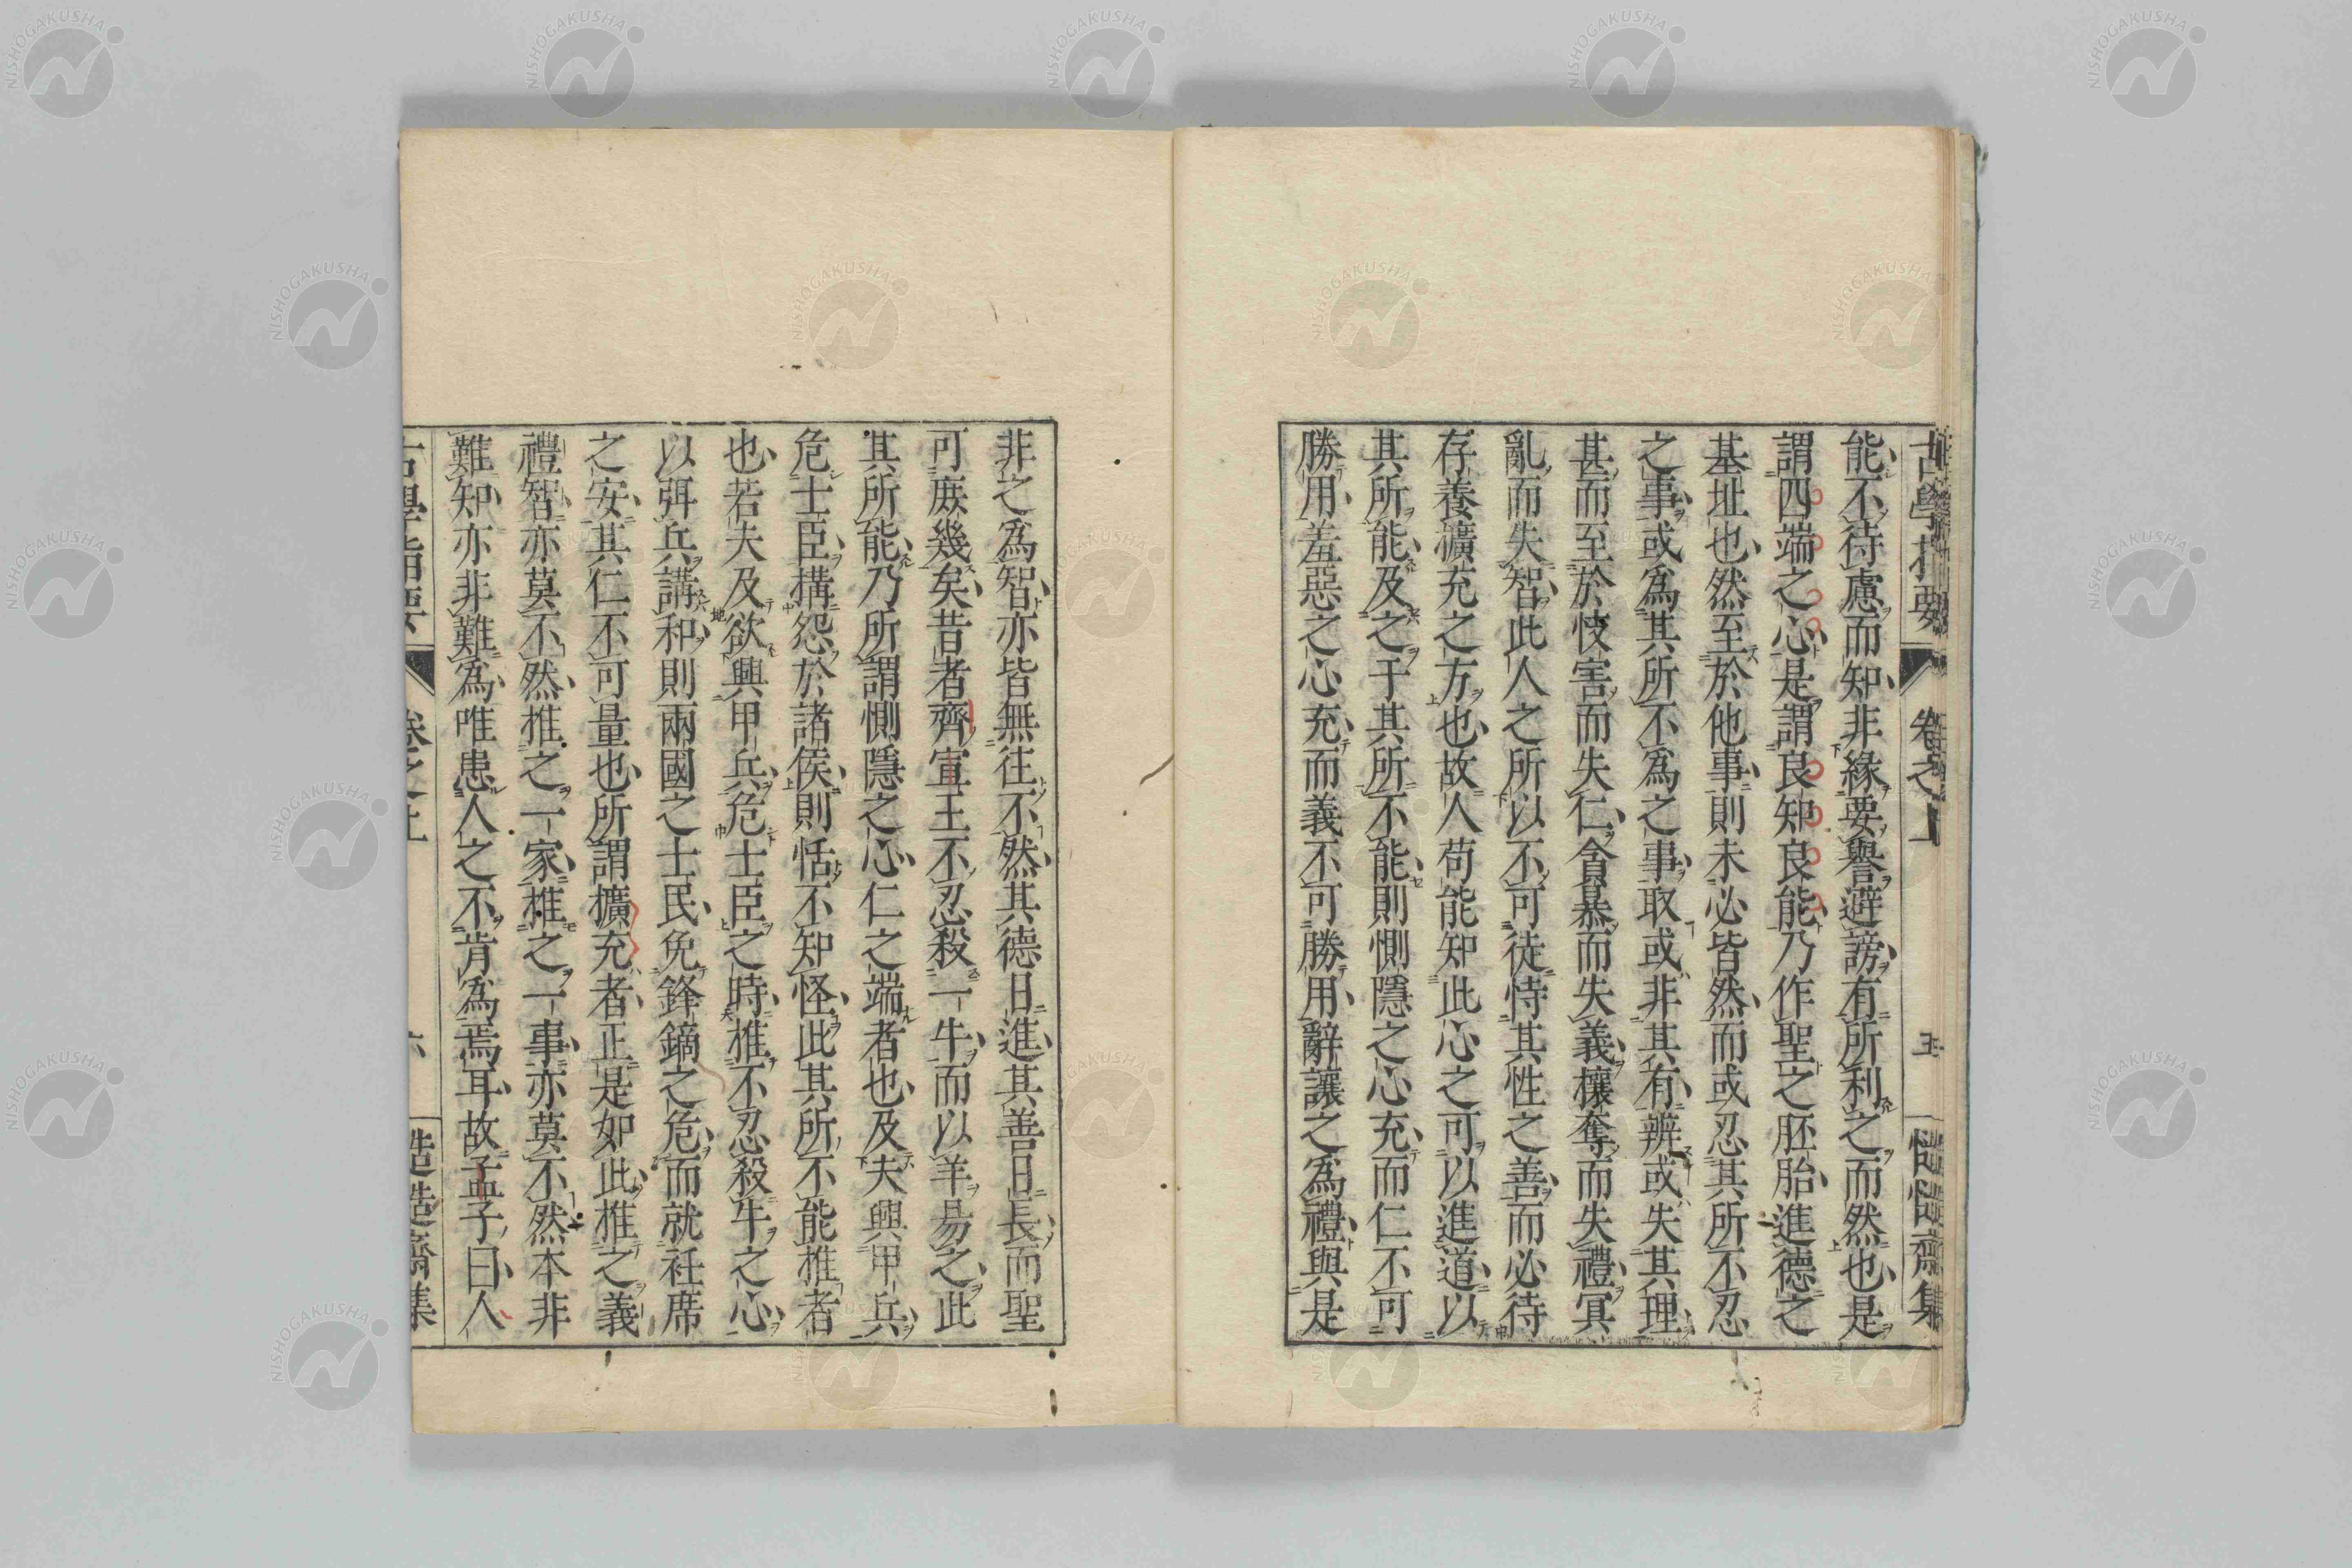 古學指要 卷之上 五 慥慥齋集
能不待慮而知非緣要譽避謗有所利之而然也是
謂四端之心是謂良知良能乃作聖之胚胎進德之
基址也然至於他事則未必皆然而或忍其所不忍
之事或爲其所不爲之事取或非其有辨或失其理
甚而至於忮害而失仁貪慕而失義攘奪而失禮冥
亂而失智此人之所以不可徒恃其性之善而必待
存養擴充之方也故人苟能知此心之可以進道以
其所能及之于其所不能則惻隱之心充而仁不可
勝用羞惡之心充而義不可勝用辭讓之爲禮與是
非之爲智亦皆無往不然其德日進其善日長而聖
可庶幾矣昔者齊宣王不忍殺一牛而以羊易之此
其所能乃所謂惻隱之心仁之端者也及夫興甲兵
危士臣構怨於諸侯則恬不知怪此其所不能推者
也若夫及欲興甲兵危士臣之時推不忍殺牛之心
以弭兵講和則兩國之士民免鋒鏑之危而就衽席
之安其仁不可量也所謂擴充者正是如此推之義
禮智亦莫不然推之一家推之一事亦莫不然本非
難知亦非難爲唯患人之不肯爲焉耳故孟子曰人
古學指要 卷之上 六 慥慥齋集
NISHOGAKUSHA